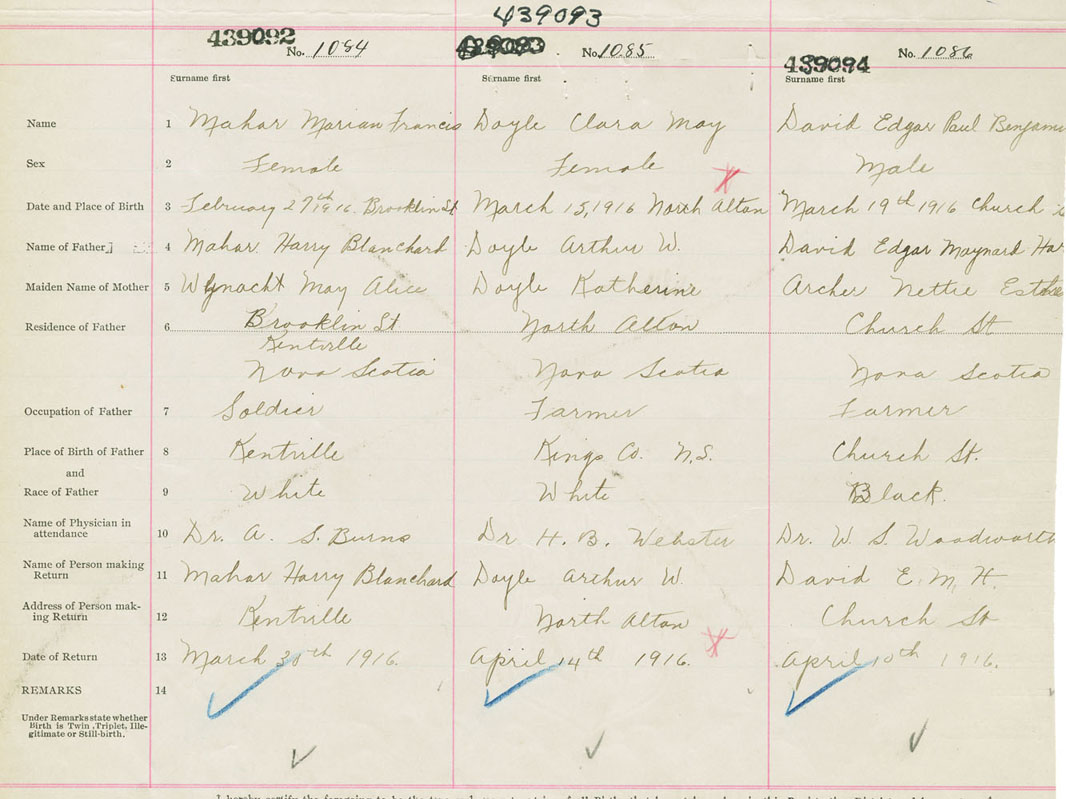 439093
439092 No. 1084 No. 1085 439094 No. 1086
Surname first Surname first Surname first
Name 1 Mahar Marian Francis Doyle Clara May David Edgar Paul Benjami
Sex 2 Female Female Male
Date and Place of Birth 3 February 27th 1916. Brooklin St March 15, 1916 North Alton March 19th 1916 Church
Name of Father 4 Mahar Harry Blanchard Doyle Arthur W. David Edgar Maynard Ha
Maiden Name of Mother 5 Wynacht May Alice Doyle Katherine Archer Nettie Esther
Residence of Father 6 Brooklin St North Alton Church St
Kentville
Nova Scotia Nova Scotia Nova Scotia
Occupation of Father 7 Soldier Farmer Farmer
Place of Birth of Father 8 Kentville Kings Co. N.S. Church St.
and
Race of Father 9 White White Black.
Name of Physician in
attendance 10 Dr. A. S. Burns Dr H. B. Webster Dr. W. S. Woodworth
Name of Person making
Return 11 Mahar Harry Blanchard Doyle Arthur W. David E. M. H.
Address of Person mak-
ing Return 12 Kentville North Alton Church St
Date of Return 13 March 30th 1916. April 14th 1916. April 10th 1916.
REMARKS 14
Under Remarks state whether
Birth is Twin, Triplet, Ille-
gitimate or Still-birth.